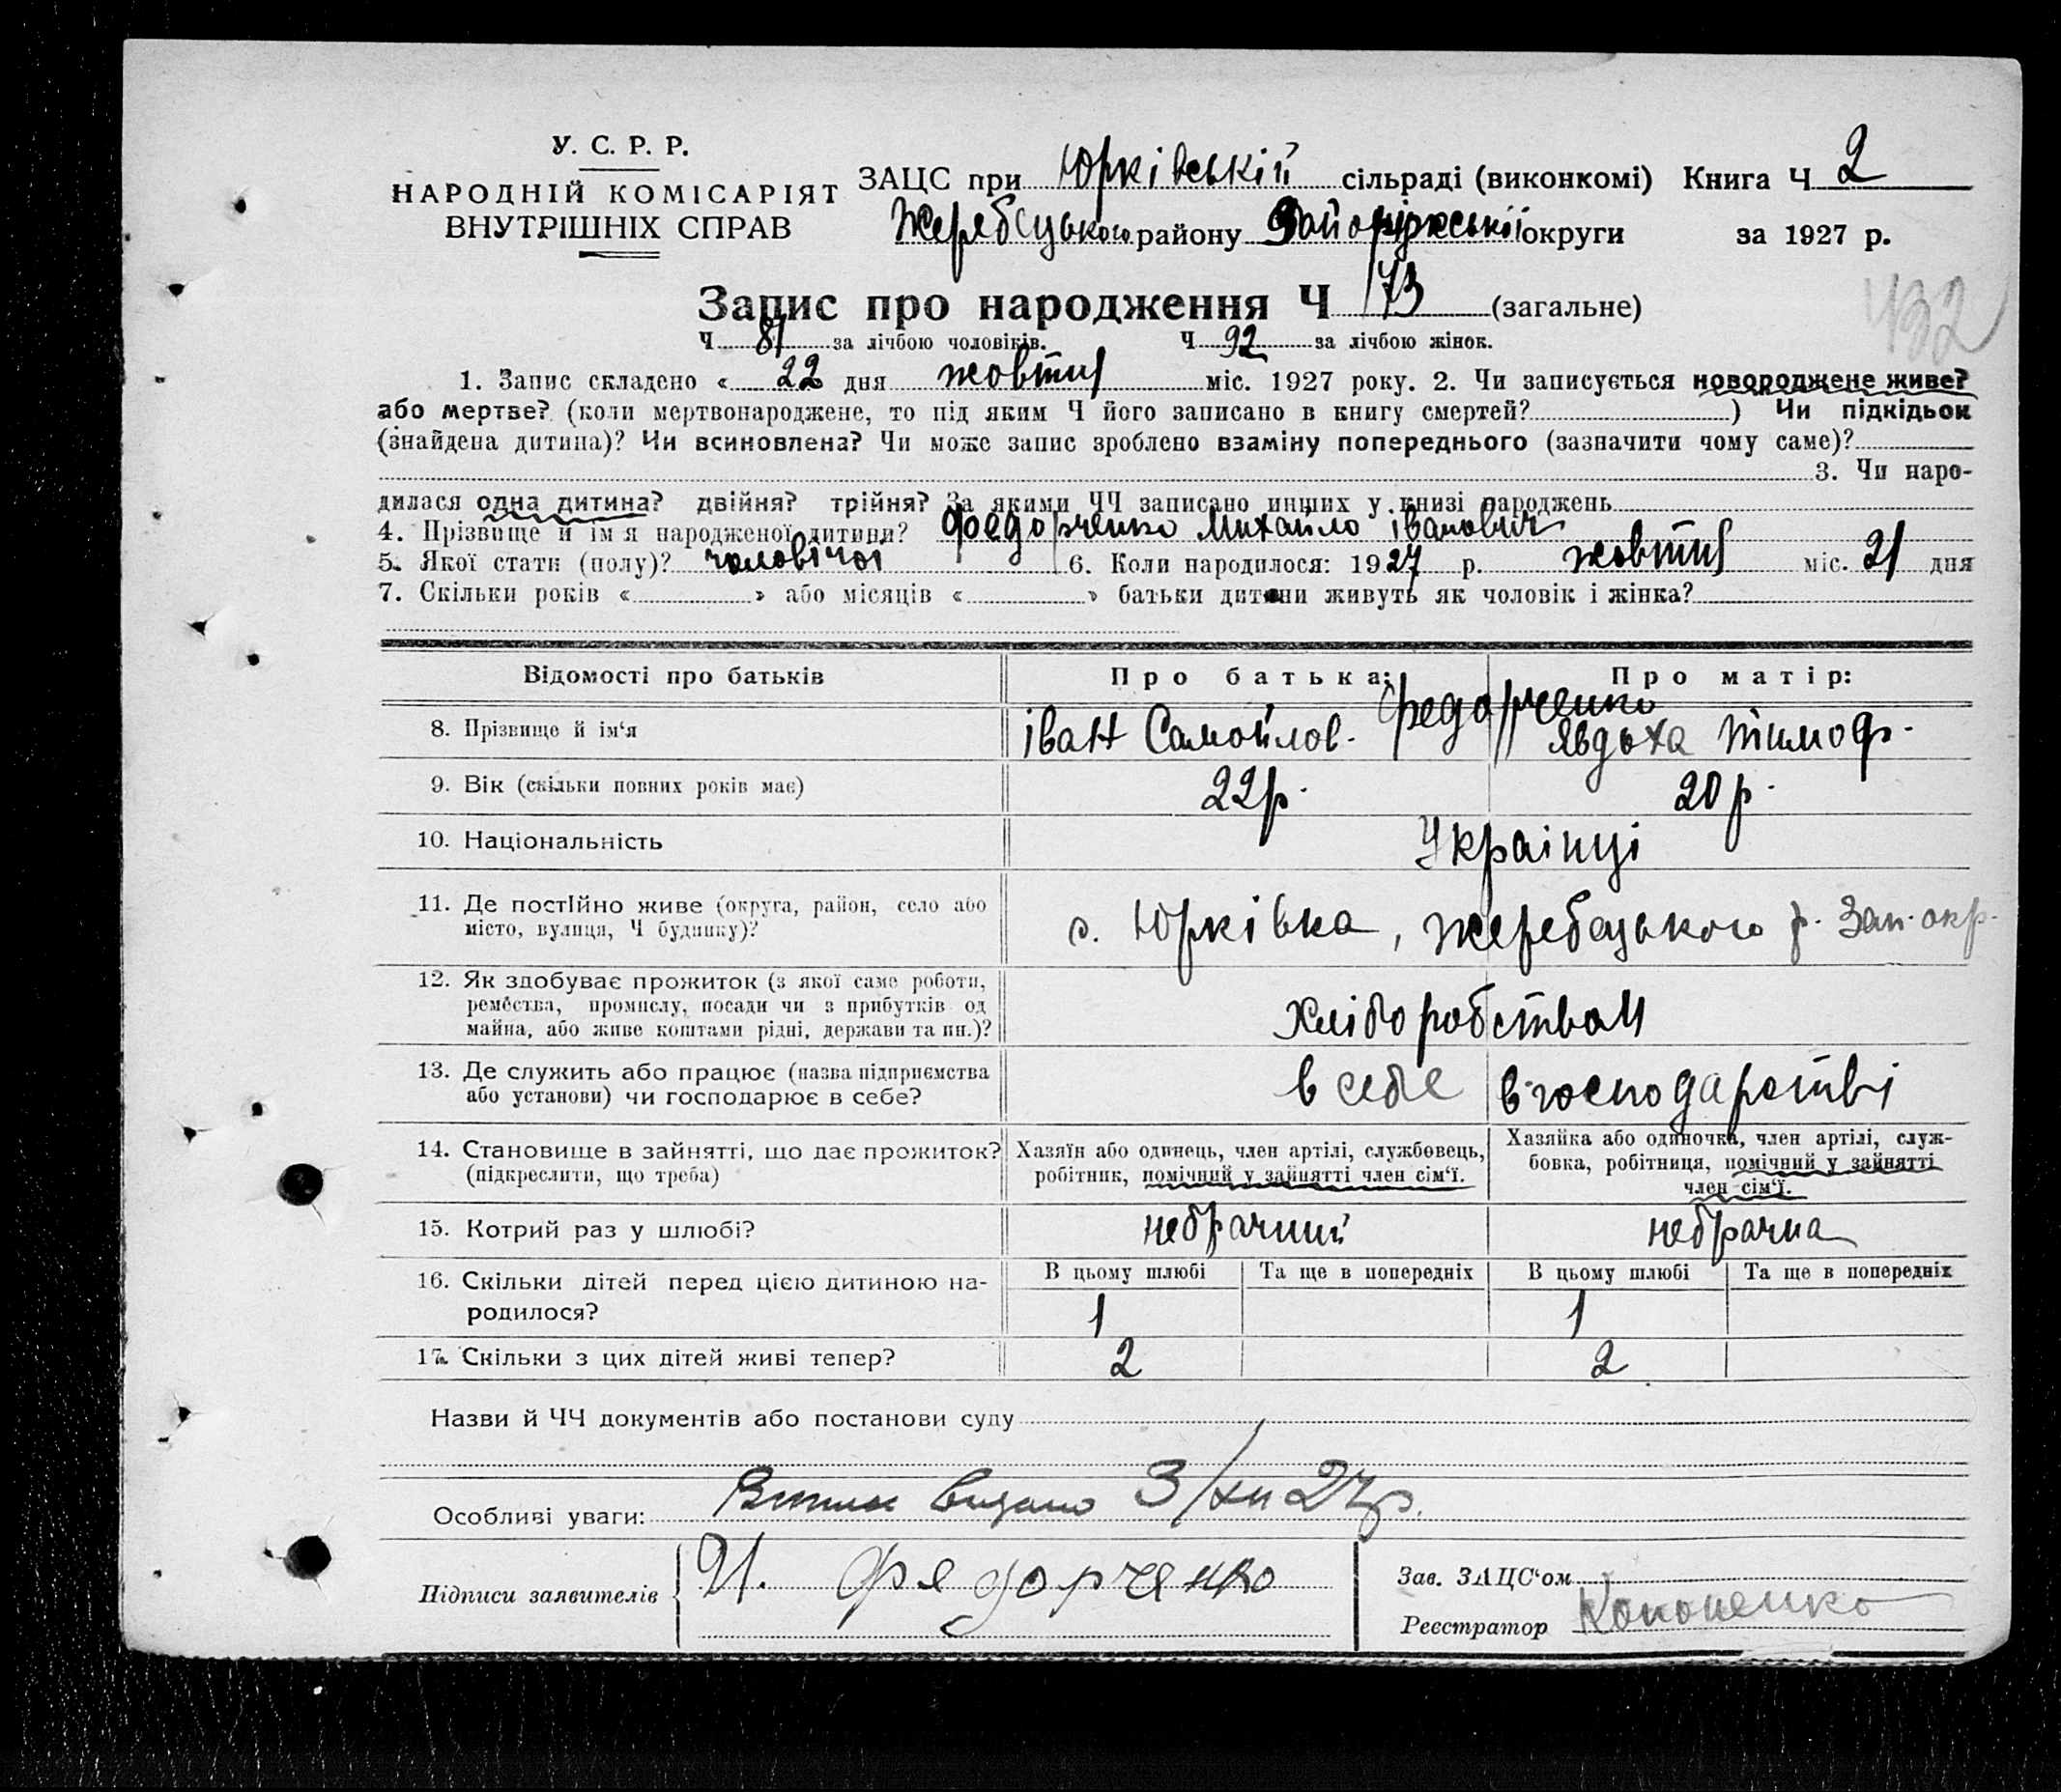 У. С. Р. Р.
НАРОДНІЙ КОМІСАРІЯТ
ВНУТРІШНІХ СПРАВ
ЗАЦС при Юрківській сільраді (виконкомі) Книга Ч 2
Жеребецького району Запоріжської округи за 1927 р.
Запис про народження Ч 173 (загальне)
432
Ч 81 за лічбою чоловіків. Ч 92 за лічбою жінок.
1. Запис складено « 22 дня жовтня міс. 1927 року. 2. Чи записується новороджене живе?
або мертве? (коли мертвонароджене, то під яким Ч його записано в книгу смертей? ) Чи підкідьок
(знайдена дитина)? Чи всиновлена? Чи може запис зроблено взаміну попереднього (зазначити чому саме)?
3. Чи наро-
дилася одна дитина? двійня? трійня? За якими ЧЧ записано инших у книзі народжень
4. Прізвище й ім'я народженої дитини? Федорченко Михайло Іванович
5. Якої стати (полу)? чоловічої 6. Коли народилося: 1927 р. жовтня міс. 21 дня
7. Скільки років « » або місяців « » батьки дитини живуть як чоловік і жінка?
Відомості про батьків Про батька: Про матір:
Федорченко
8. Прізвище й ім'я Іван Самойлов. Явдоха Тимоф.
9. Вік (скільки повних років має) 22 р. 20 р.
10. Національність Українці
11. Де постійно живе (округа, район, село або
місто, вулиця, Ч будинку)? с. Юрківка, Жеребецького р. Зап. окр.
12. Як здобуває прожиток (з якої саме роботи,
ремества, промислу, посади чи з прибутків од
майна, або живе коштами рідні, держави та ин.)? Хліборобством
13. Де служить або працює (назва підприємства
або установи) чи господарює в себе? в себе в господарстві
14. Становище в зайнятті, що дає прожиток?
(підкреслити, що треба)
Хазяїн або одинець, член артілі, службовець,
робітник, помічний у зайнятті член сім'ї.
Хазяйка або одиночка, член артілі, служ-
бовка, робітниця, помічний у зайнятті
член сім'ї.
15. Котрий раз у шлюбі? небрачний небрачна
16. Скільки дітей перед цією дитиною на-
родилося?
В цьому шлюбі Та ще в попередніх В цьому шлюбі Та ще в попередніх
1 1
17. Скільки з цих дітей живі тепер? 2 2
Назви й ЧЧ документів або постанови суду
Особливі уваги: Витяг видано 3/XII 27 р.
Підписи заявителів И. Федорченко
Зав. ЗАЦС'ом
Реєстратор Кононенко